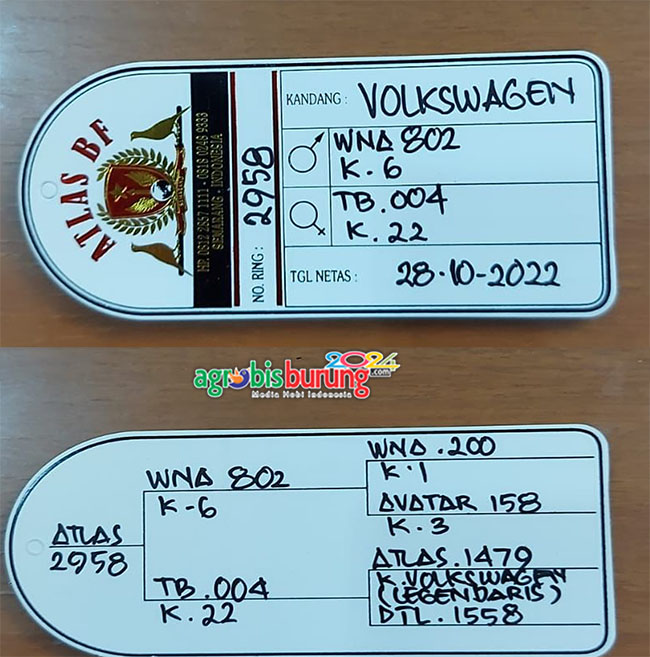 ATLAS BF
HP. 0812 2957 1111 - 0818 0245 9333
SEMARANG - INDONESIA
NO. RING : 2958
KANDANG : VOLKSWAGEN
♂ WNA 802
K. 6
♀ TB. 004
K. 22
TGL NETAS : 28-10-2022
2024
agrobisburung.com
Media Hobi Indonesia
ATLAS
2958
WNA 802
K-6
TB. 004
K. 22
WNA . 200
K. 1
AVATAR 158
K. 3
ATLAS. 1479
K. VOLKSWAGEN
(LEGENDARIS)
DTL. 1558